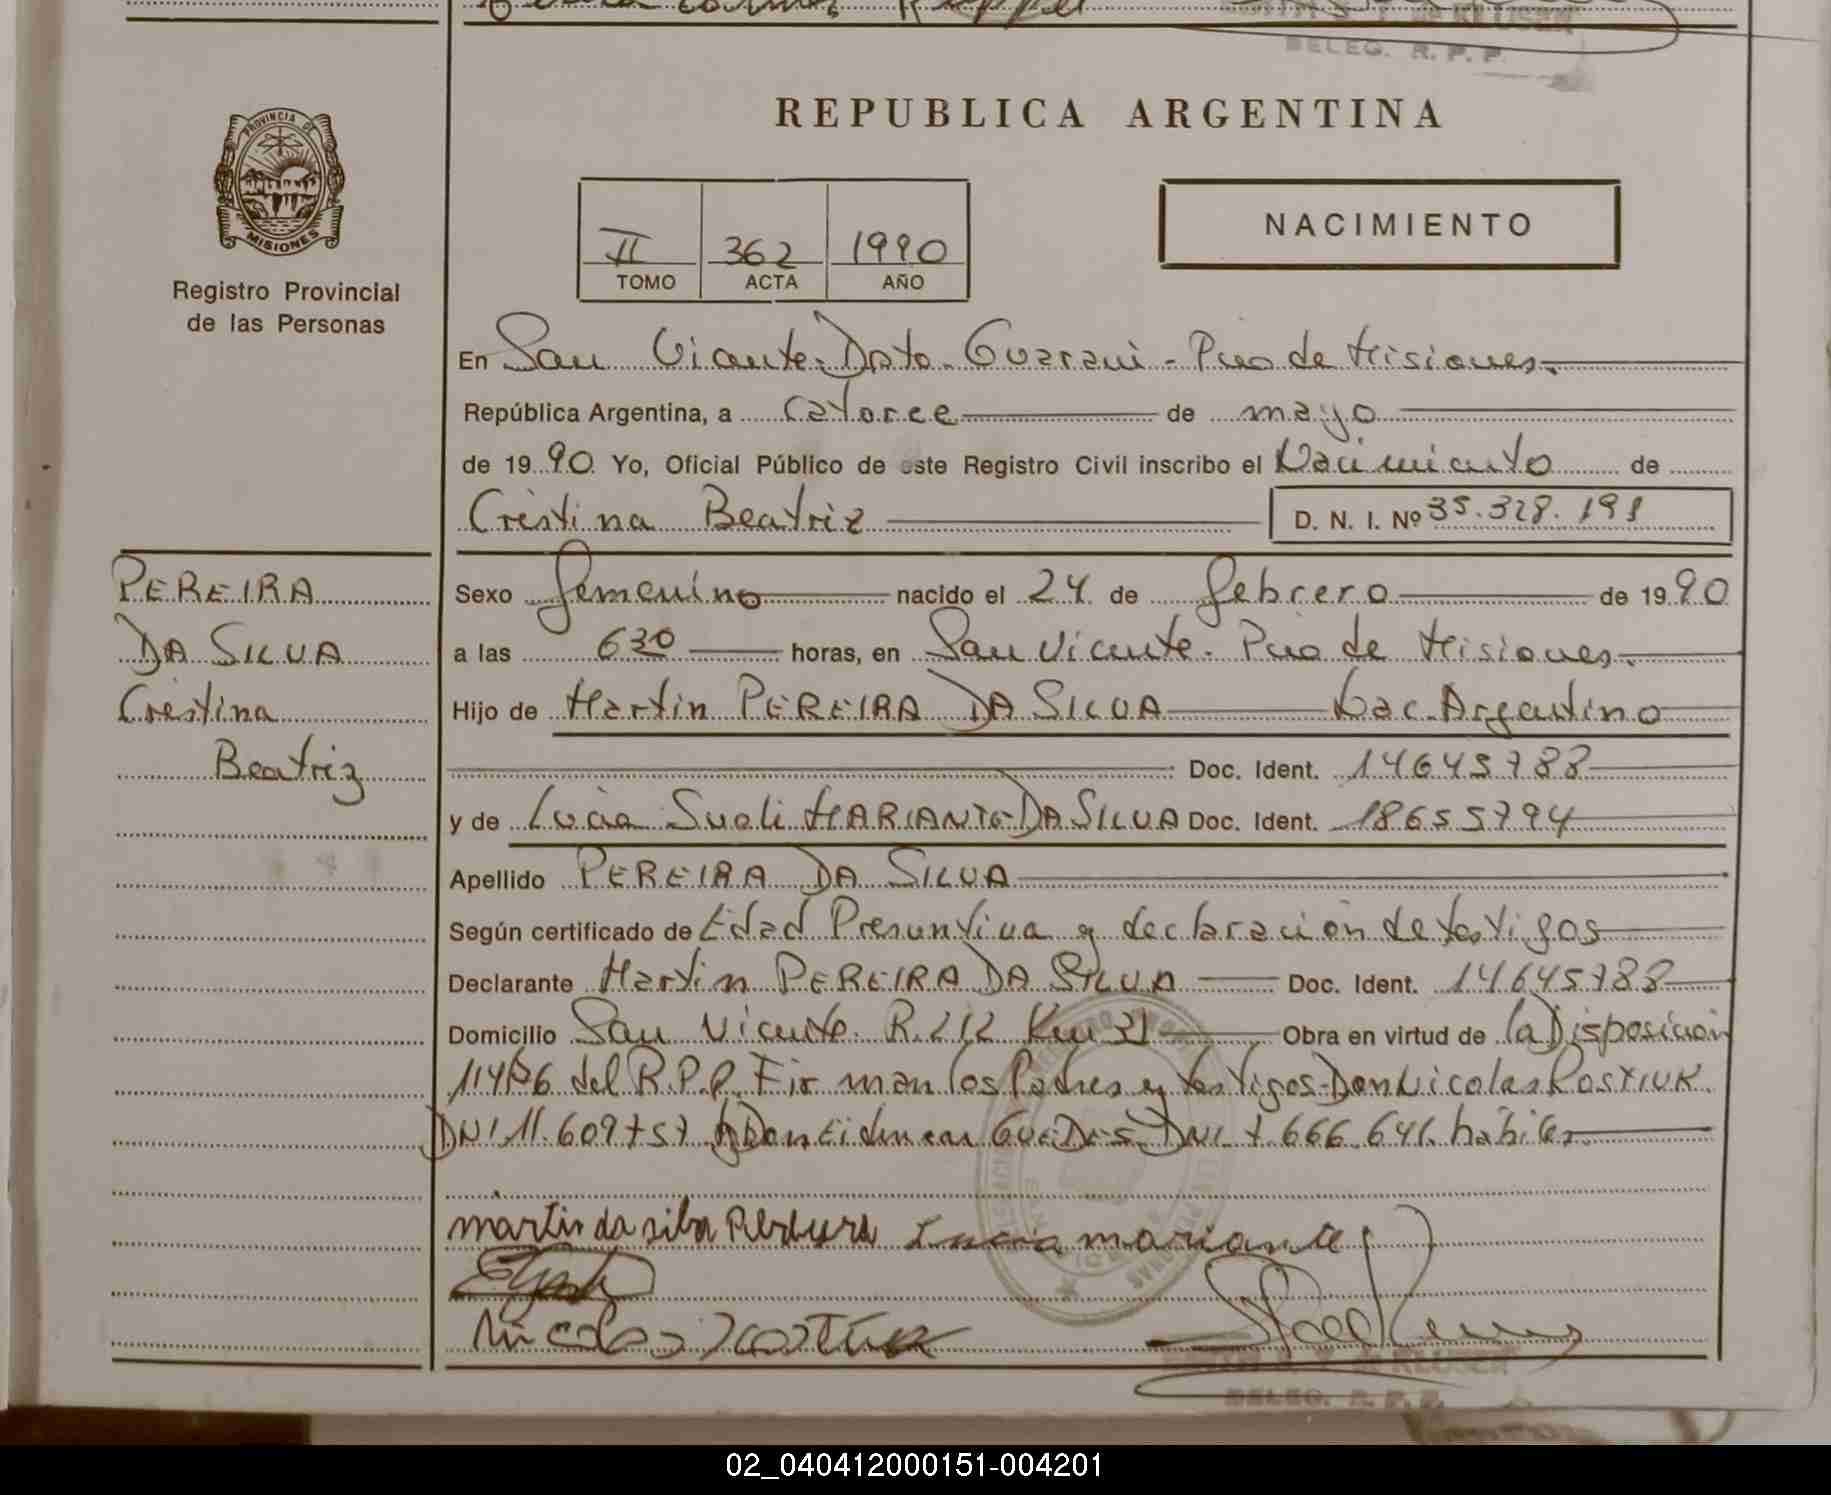 DELEG. R. P. P.
REPUBLICA ARGENTINA
PROVINCIA DE
MISIONES
Registro Provincial
de las Personas
II 362 1990
TOMO ACTA AÑO
NACIMIENTO
En San Vicente-Dpto-Guarani-Pcia de Misiones.
República Argentina, a catorce de mayo
de 1990. Yo, Oficial Público de este Registro Civil inscribo el Nacimiento de
Cristina Beatriz D. N. I. Nº 35.328.191
PEREIRA
DA SILVA
Cristina
Beatriz
Sexo femenino nacido el 24 de febrero de 1990
a las 630 horas, en San Vicente. Pcia de Misiones.
Hijo de Martin PEREIRA DA SILVA Nac. Argentino
Doc. Ident. 14645788
y de Lucia Sueli MARIANTE DA SILVA Doc. Ident. 18655794
Apellido PEREIRA DA SILVA
Según certificado de Edad Presuntiva y declaración de testigos
Declarante Martin PEREIRA DA SILVA Doc. Ident. 14645788
Domicilio San Vicente. R.212 Km 31 Obra en virtud de la Disposición
114/86 del R.P.P. Firman los Padres y testigos-Don Nicolas Rostiuk
DNI 11.609757 y Don GUEDES DNI 7.666.641. habiles.
martin da silva Lucia mariante
Nicolas
DELEG. R. P. P.
02_040412000151-004201